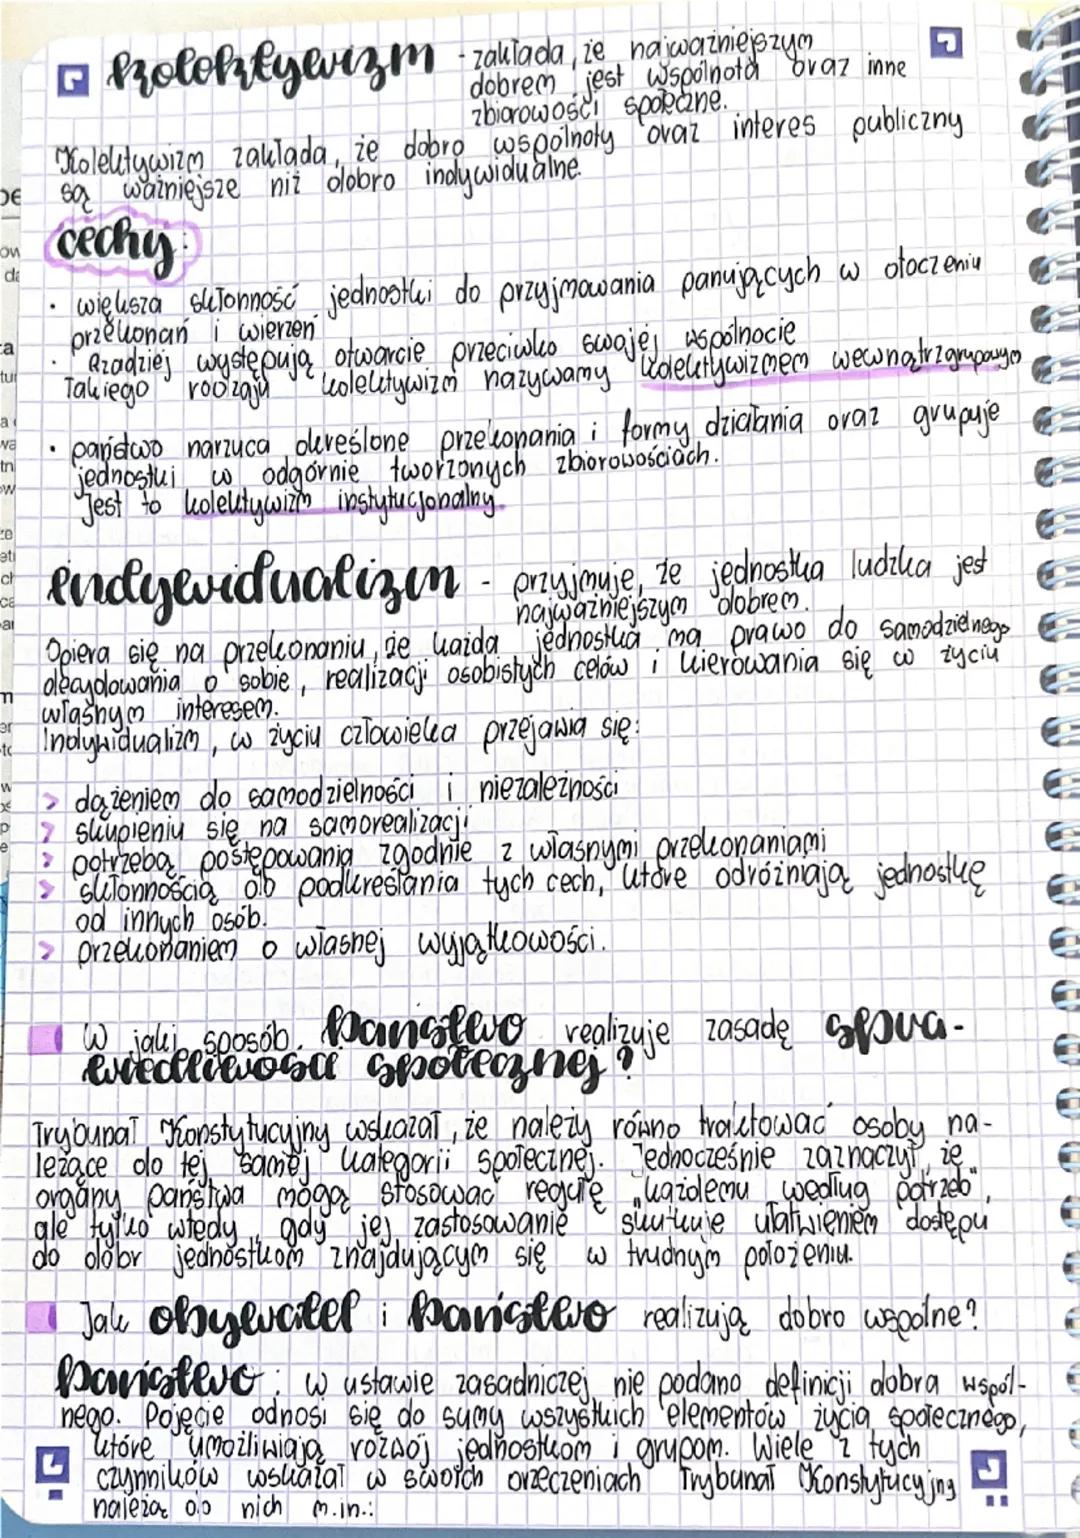 kolektywizm - zakłada, że najważniejszym
dobrem jest wspólnota oraz inne
zbiorowości społeczne.
Kolektywizm zakłada, że dobro wspólnoty oraz interes publiczny
są ważniejsze niż dobro indywidualne.
cechy:
· większa skłonność jednostki do przyjmowania panujących w otoczeniu
przekonań i wierzeń
· Rzadziej występują otwarcie przeciwko swojej wspólnocie
Takiego rodzaju kolektywizm nazywamy kolektywizmem wewnątrzgrupowym
· państwo narzuca określone przekonania i formy działania oraz grupuje
jednostki w odgórnie tworzonych zbiorowościach.
Jest to kolektywizm instytucjonalny.
indywidualizm - przyjmuje, że jednostka ludzka jest
najważniejszym dobrem.
Opiera się na przekonaniu, że każda jednostka ma prawo do samodzielnego
decydowania o sobie, realizacji osobistych celów i kierowania się w życiu
własnym interesem.
Indywidualizm, w życiu człowieka przejawia się:
> dążeniem do samodzielności i niezależności
> skupieniu się na samorealizacji
> potrzebą postępowania zgodnie z własnymi przekonaniami
> skłonnością do podkreślania tych cech, które odróżniają jednostkę
od innych osób.
> przekonaniem o własnej wyjątkowości.
W jaki sposób państwo realizuje zasadę spra-
wiedliwości społecznej?
Trybunał Konstytucyjny wskazał, że należy równo traktować osoby na-
leżące do tej samej kategorii społecznej. Jednocześnie zaznaczył, że
organy państwa mogą stosować regułę "każdemu według potrzeb",
ale tylko wtedy, gdy jej zastosowanie skutkuje ułatwieniem dostępu
do dóbr jednostkom znajdującym się w trudnym położeniu.
Jak obywatel i państwo realizują dobro wspólne?
Państwo: w ustawie zasadniczej nie podano definicji dobra wspól-
nego. Pojęcie odnosi się do sumy wszystkich elementów życia społecznego,
które umożliwiają rozwój jednostkom i grupom. Wiele z tych
czynników wskazał w swoich orzeczeniach Trybunał Konstytucyjny
należą do nich m.in.: